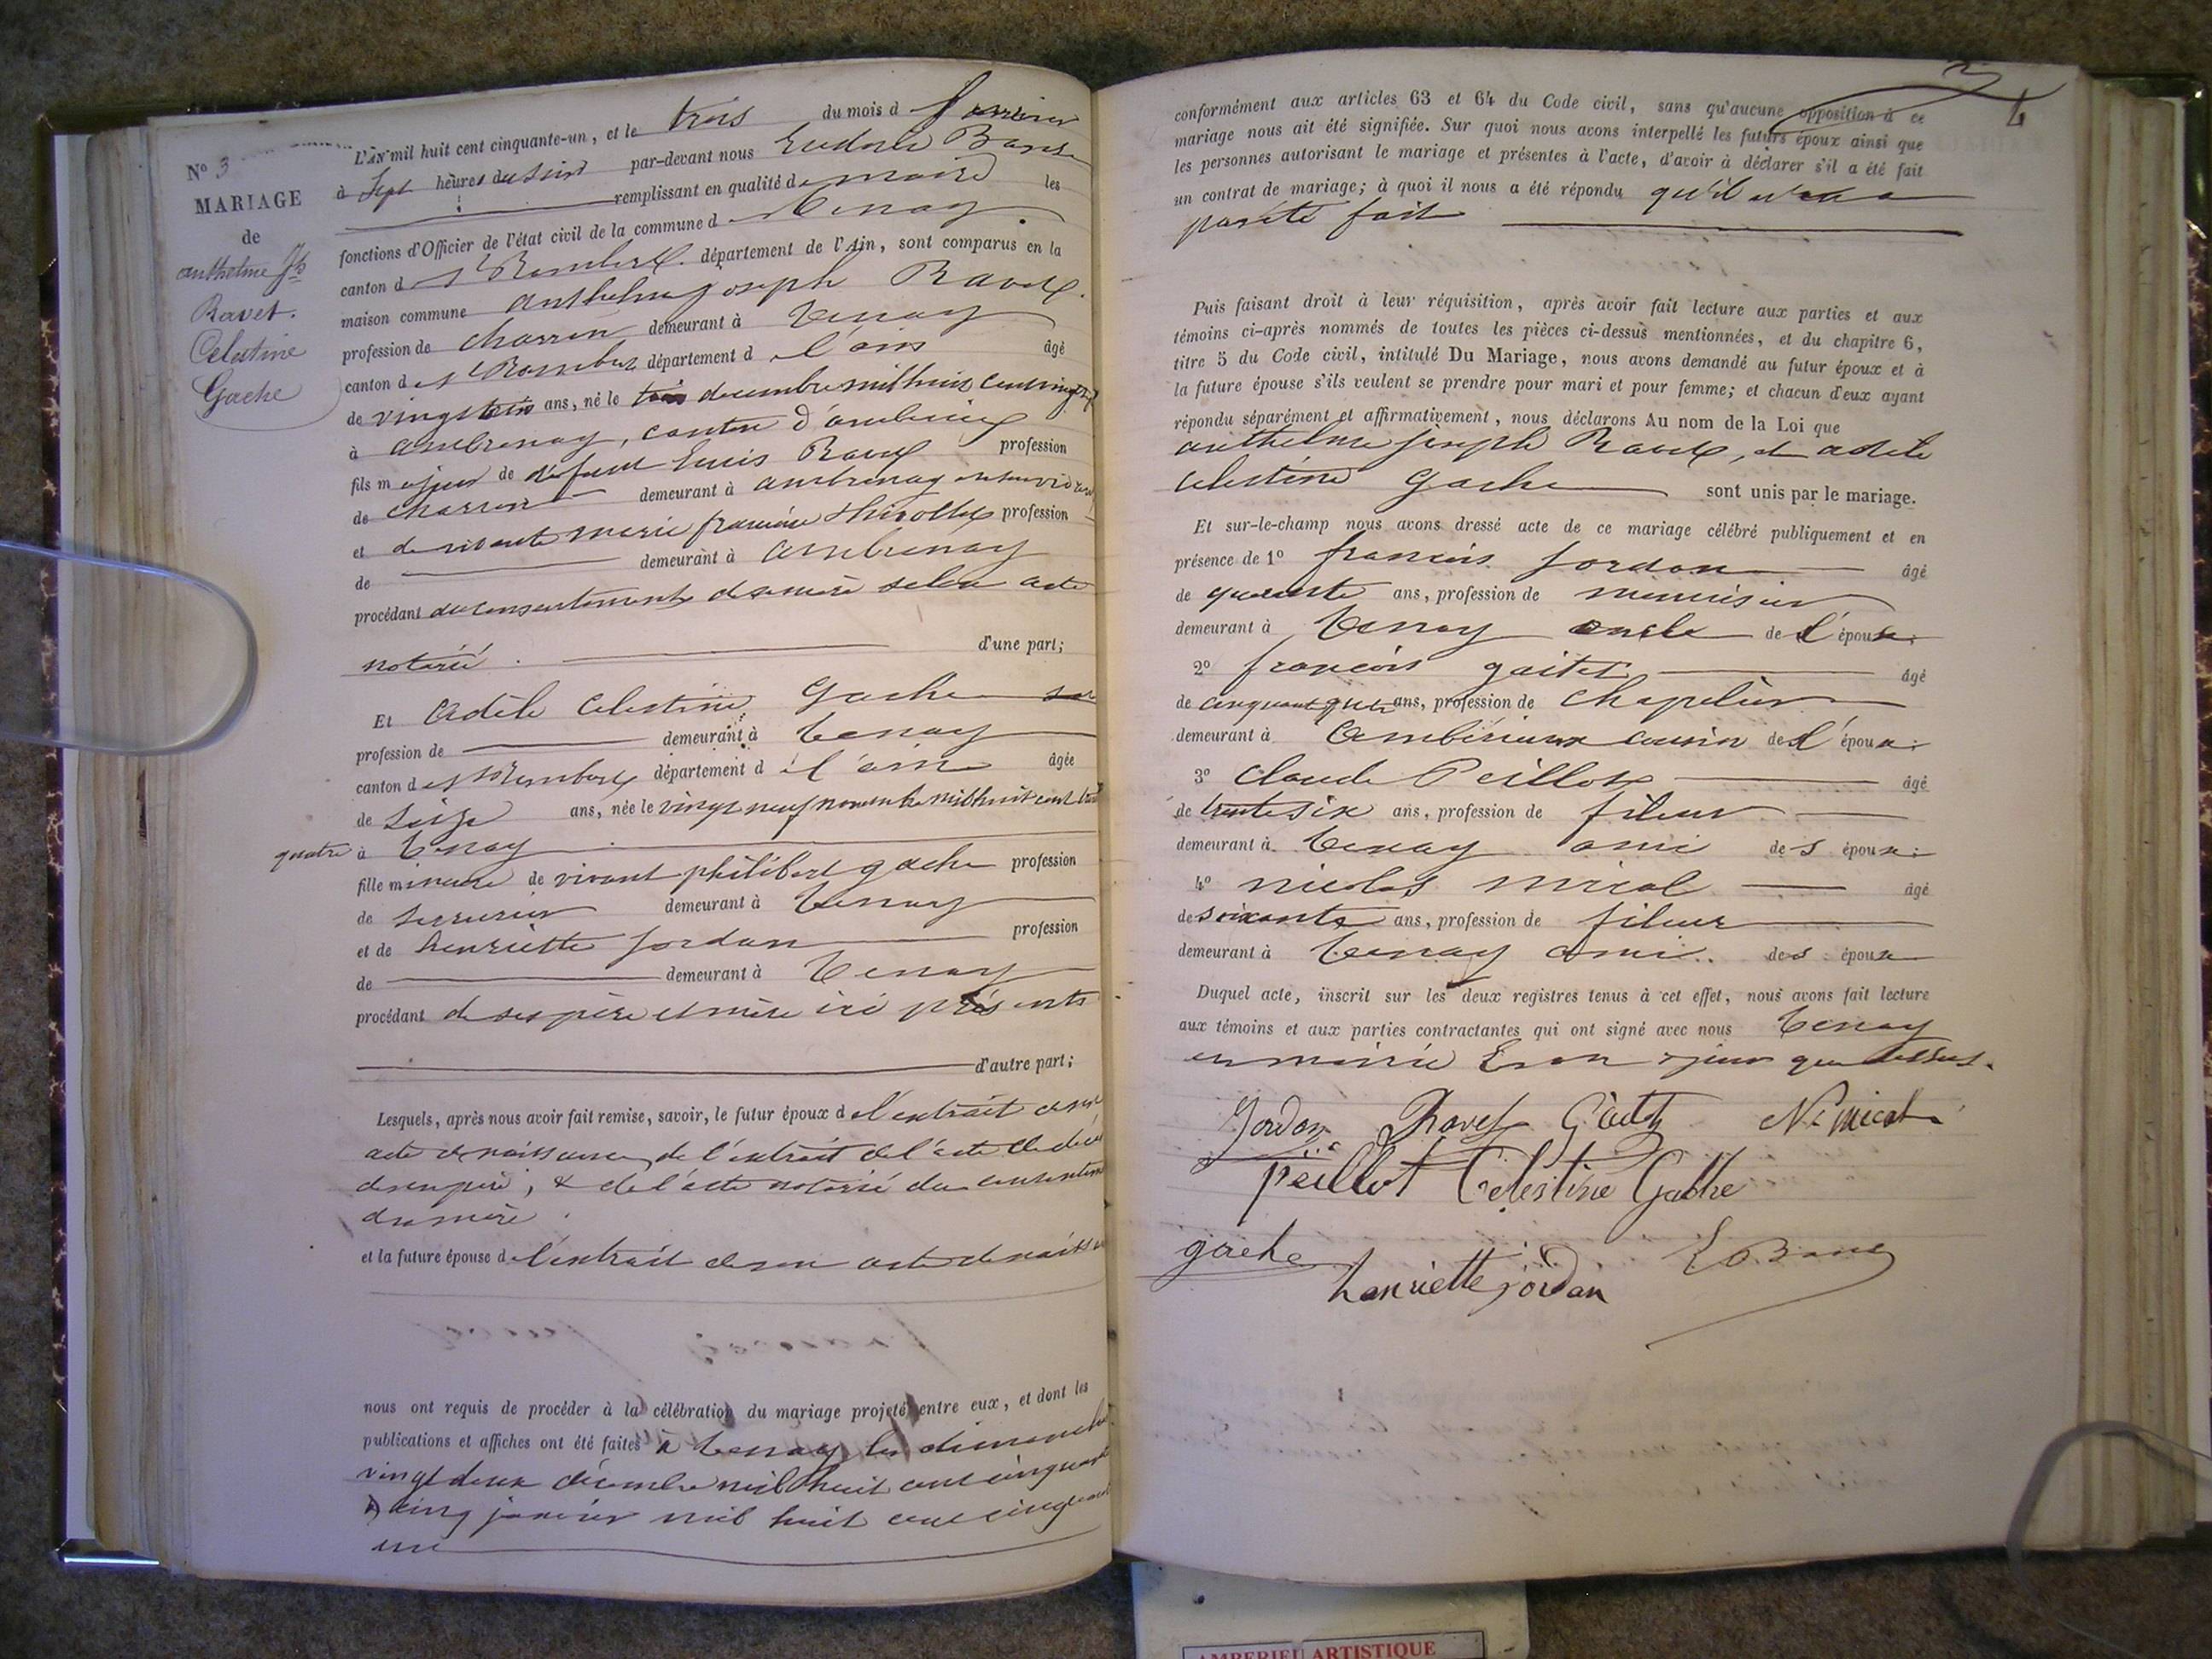 N° 3
MARIAGE
de
anthelme Jh
Ravet.
Celestine
Gache
L'AN mil huit cent cinquante-un, et le trois du mois d
à Sept heures du soir par-devant nous
remplissant en qualité de maire les
fonctions d'Officier de l'état civil de la commune d Tenay
canton d St Rambert département de l'Ain, sont comparus en la
maison commune anthelme joseph Ravet
profession de charron demeurant à Tenay
canton d St Rambert département d l'ain âgé
de vingt trois ans, né le trois decembre mil huit cent vingt sept
à ambronay, canton d'ambérieu
fils majeur de défunt Louis Ravet profession
de charron demeurant à ambronay
et de vivante marie profession
de demeurant à ambronay
procédant du consentement de sa mère selon acte
notarié d'une part;
Et Adèle Celestine Gache
profession de demeurant à Tenay
canton d St Rambert département d l'ain âgée
de Seize ans, née le vingt neuf novembre mil huit cent trente
quatre à Tenay
fille mineure de vivant philibert gache profession
de serrurier demeurant à Tenay
et de henriette jordan profession
de demeurant à Tenay
procédant de ses père et mère ici présents
d'autre part;
Lesquels, après nous avoir fait remise, savoir, le futur époux d l'extrait de son
acte de naissance, de l'extrait de l'acte de décès
de son père, & de l'acte notarié du consentement
de sa mère.
et la future épouse d l'extrait de son acte de naissance
nous ont requis de procéder à la célébration du mariage projeté entre eux, et dont les
publications et affiches ont été faites à Tenay les dimanches
vingt deux décembre mil huit cent cinquante
& cinq janvier mil huit cent cinquante
un
4
conformément aux articles 63 et 64 du Code civil, sans qu'aucune opposition à ce
mariage nous ait été signifiée. Sur quoi nous avons interpellé les futurs époux ainsi que
les personnes autorisant le mariage et présentes à l'acte, d'avoir à déclarer s'il a été fait
un contrat de mariage; à quoi il nous a été répondu qu'il n'en a
pas été fait
Puis faisant droit à leur réquisition, après avoir fait lecture aux parties et aux
témoins ci-après nommés de toutes les pièces ci-dessus mentionnées, et du chapitre 6,
titre 5 du Code civil, intitulé Du Mariage, nous avons demandé au futur époux et à
la future épouse s'ils veulent se prendre pour mari et pour femme; et chacun d'eux ayant
répondu séparément et affirmativement, nous déclarons Au nom de la Loi que
anthelme joseph Ravet, et adele
celestine gache sont unis par le mariage.
Et sur-le-champ nous avons dressé acte de ce mariage célébré publiquement et en
présence de 1° francois jordan âgé
de quarante ans, profession de menuisier
demeurant à Tenay oncle de l'épouse;
2° françois gaitet âgé
de ans, profession de chapelier
demeurant à Ambérieux cousin de l'époux;
3° claude Peillot âgé
de trente six ans, profession de fileur
demeurant à Tenay ami des époux;
4° nicolas micol âgé
de soixante ans, profession de fileur
demeurant à Tenay ami des époux
Duquel acte, inscrit sur les deux registres tenus à cet effet, nous avons fait lecture
aux témoins et aux parties contractantes qui ont signé avec nous Tenay
en mairie jour que dessus.
Jordan Ravet
peillot Celestine Gache
gache
henriette jordan
AMBERIEU ARTISTIQUE